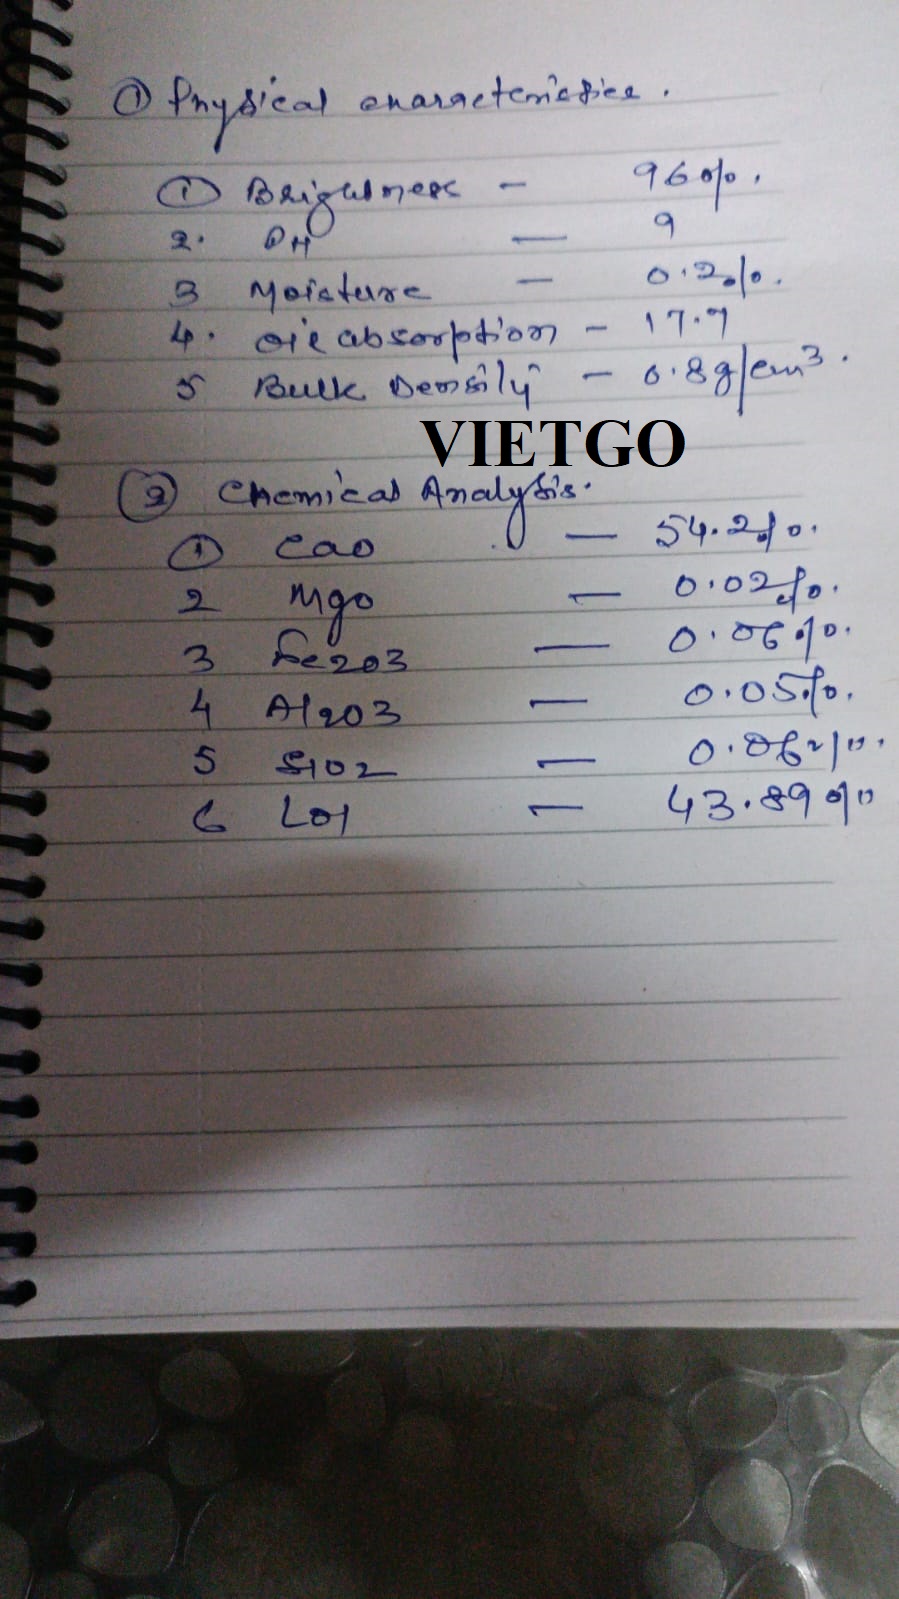 ① Physical characteristics.
① Brightness - 96%.
2. PH - 9
3 Moisture - 0.2%.
4. Oil absorption - 17.9
5 Bulk Density - 0.8g/cm³.
VIETGO
② Chemical Analysis.
① Cao - 54.2%.
2 Mgo - 0.02%.
3 Fe2O3 - 0.06%.
4 Al2O3 - 0.05%.
5 SiO2 - 0.06%.
6 LOI - 43.89%